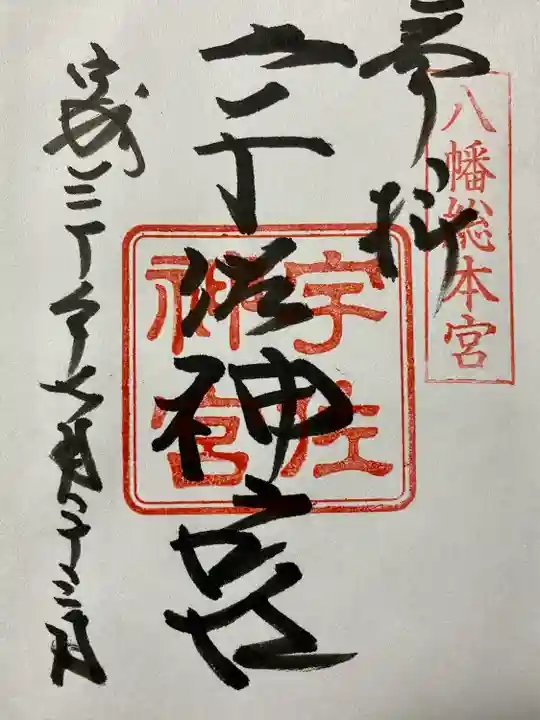 八幡総本宮
奉拝
宇佐神宮
宇佐神宮
七月十二日